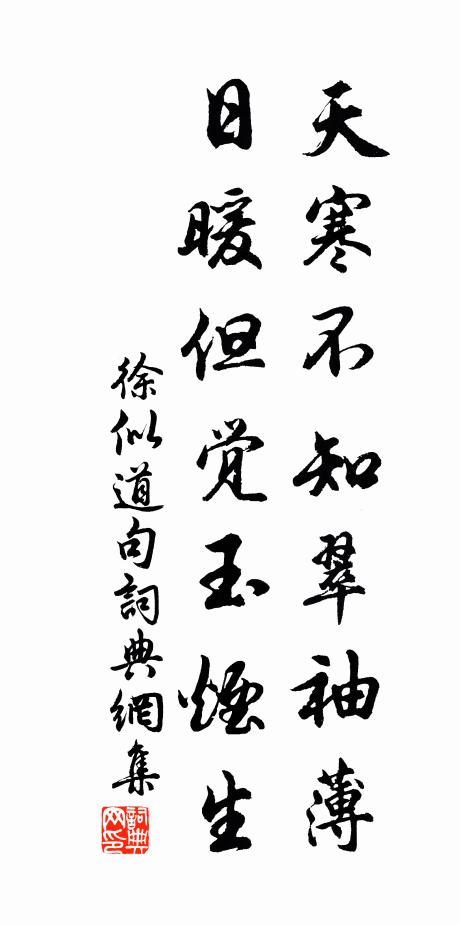 天寒不知翠袖薄
日暖但觉玉烟生
徐似道句詞典網集
詞典网印